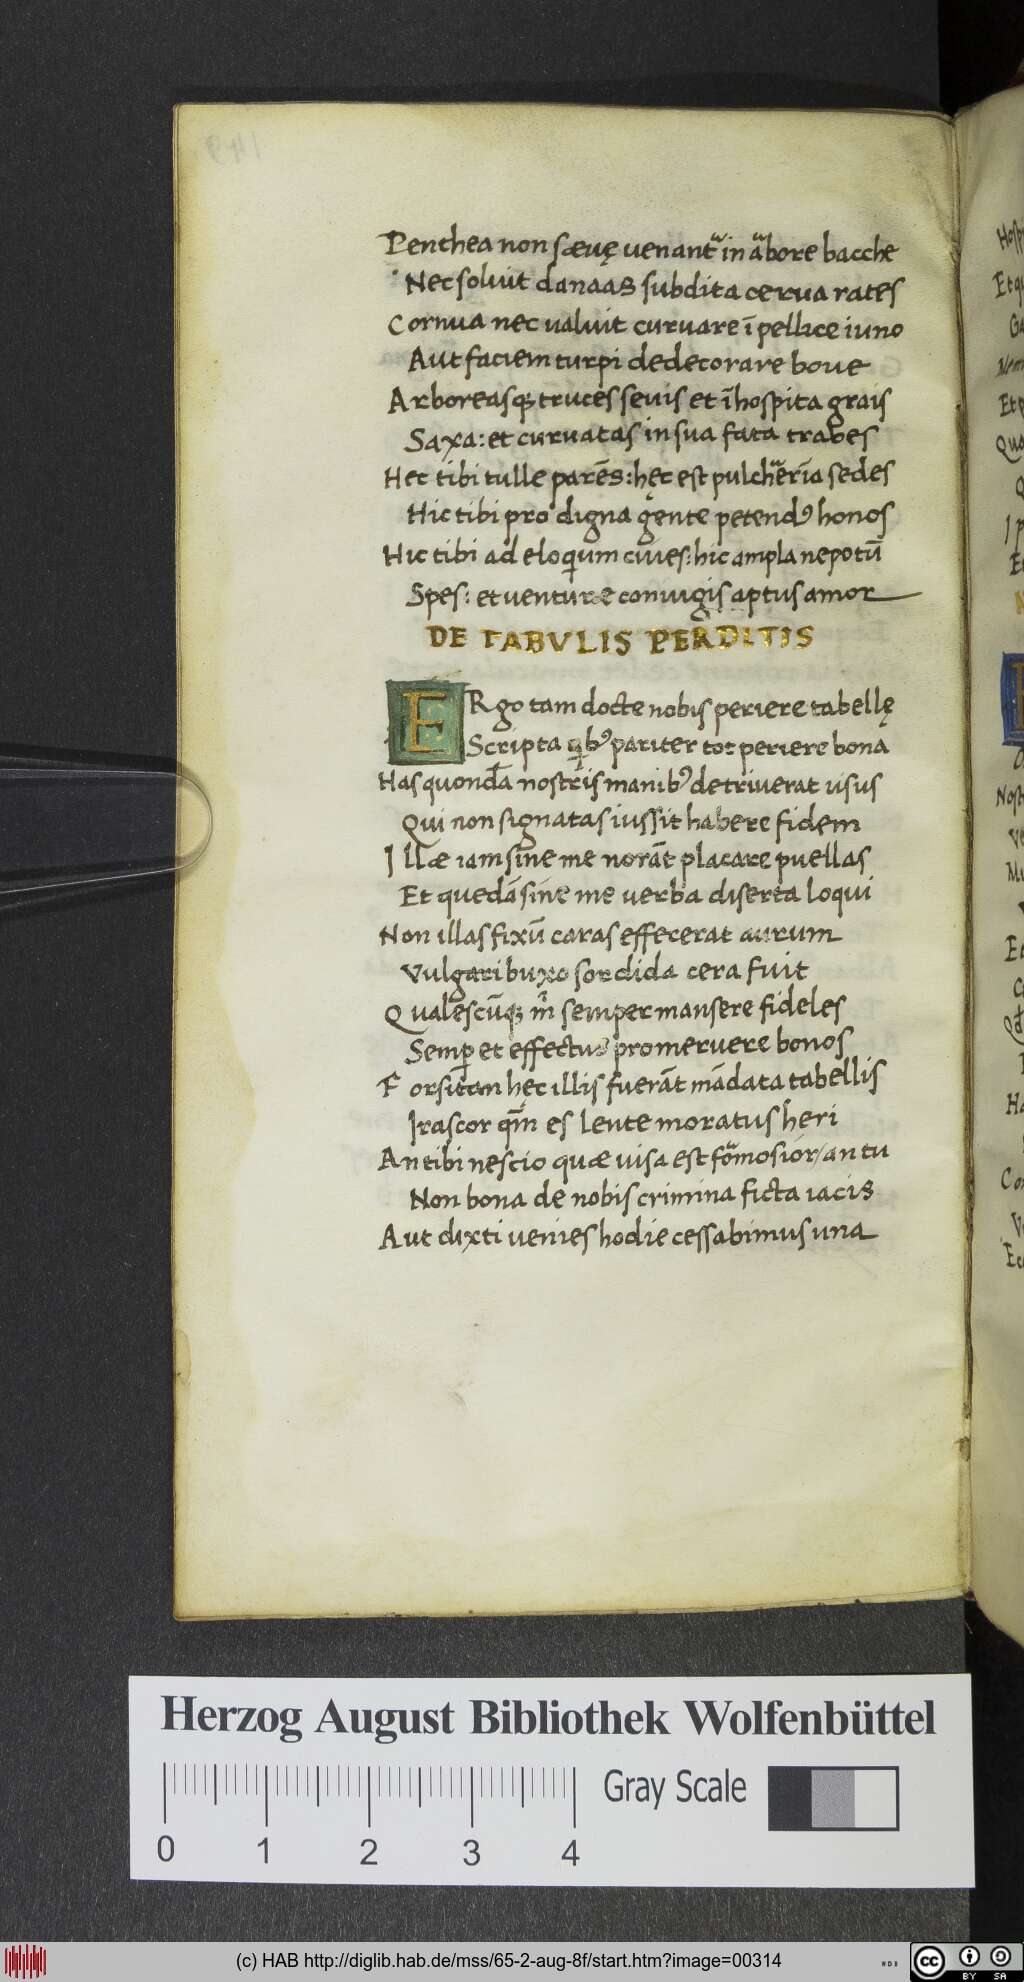 Penthea non sævę venantᷓ in aᷓbore bacche
Nec soluit danaas subdita cerua rates
Cornua nec ualuit curuare ī pellice iuno
Aut faciem turpi dedecorare boue
Arboreasqꝫ truces seuis et īhospita grais
Saxa: et curuatas in sua fata trabes
Hec tibi tulle parēs: hęc est pulchᷓerīa sedes
Hic tibi pro digna gente petendꝰ honos
Hic tibi ad eloqium ciues: hic ampla nepotū
Spes: et venturæ coniugis aptus amor
DE TABVLIS PERDITIS
ERgo tam docte nobis periere tabellę
Scripta qͥbꝰ pariter tot periere bona
Has quondā nostris manibꝰ detriuerat usus
Qui non signatas iussit habere fidem
Illæ iam sine me norāt placare puellas
Et quedā sine me verba diserta loqui
Non illas fixū caras effecerat aurum
Vulgari buxo sordida cera fuit
Qualescūqꝫ mͥ semper mansere fideles
Semꝑ et effectus promeruere bonos
Forsitan hęc illis fuerāt mādata tabellis
Irascor qm̄ es lente moratus heri
An tibi nescio quæ uisa est foᷓmosior/an tu
Non bona de nobis crimina ficta iacis
Aut dixti uenies hodie cessabimus una
Herzog August Bibliothek Wolfenbüttel
0 1 2 3 4 Gray Scale
(c) HAB http://diglib.hab.de/mss/65-2-aug-8f/start.htm?image=00314
cc BY SA